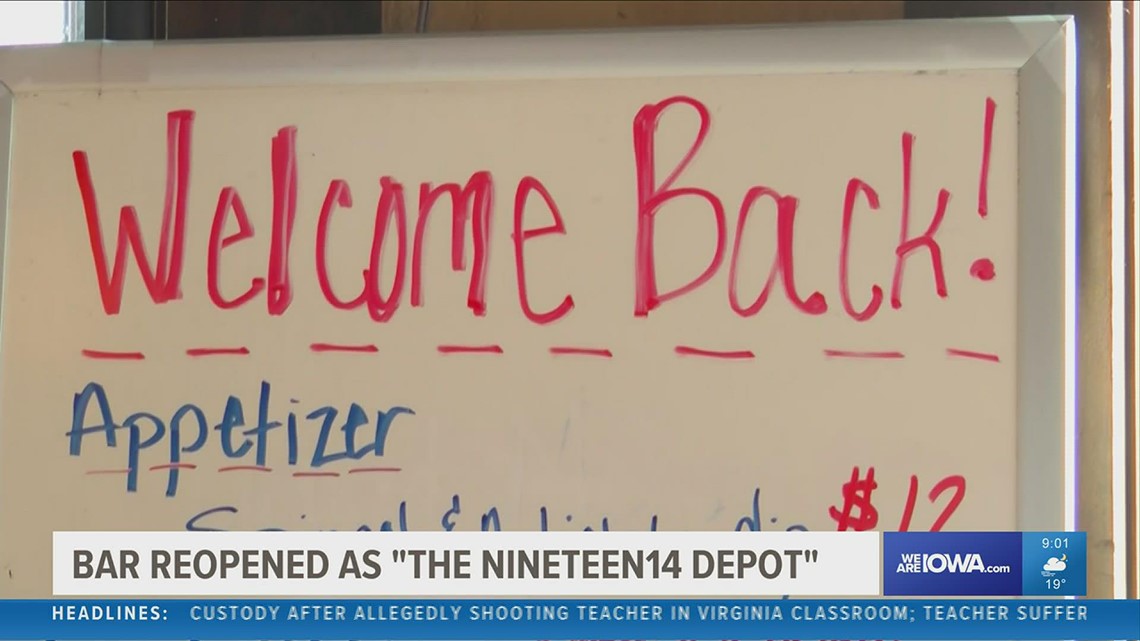 Welcome Back!
Appetizer
$12
BAR REOPENED AS "THE NINETEEN14 DEPOT"
WE ARE IOWA.com
9:01
19°
HEADLINES: CUSTODY AFTER ALLEGEDLY SHOOTING TEACHER IN VIRGINIA CLASSROOM; TEACHER SUFFER